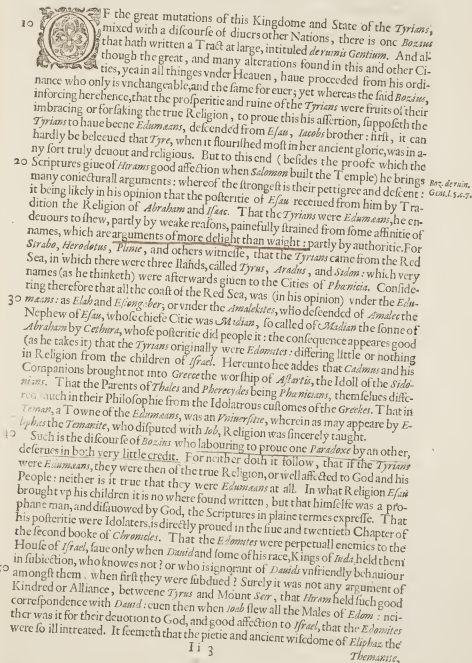 10 OF the great mutations of this Kingdome and State of the Tyrians,
mixed with a discourse of diuers other Nations, there is one Bozius
that hath written a Tract at large, intituled de ruinis Gentium. And al-
though the great, and many alterations found in this and other Ci-
ties, yea in all things vnder Heauen, haue proceeded from his ordi-
nance who only is vnchangeable, and the same for euer; yet whereas the said Bozius,
inforcing herehence, that the prosperitie and ruine of the Tyrians were fruits of their
imbracing or forsaking the true Religion, to proue this his assertion, supposeth the
Tyrians to haue beene Edumæans, descended from Esau, Iacobs brother: first, it can
hardly be beleeued that Tyre, when it flourished most in her ancient glorie, was in a-
ny sort truly deuout and religious. But to this end (besides the proofe which the
20 Scriptures giue of Hirams good affection when Salomon built the Temple) he brings
many coniecturall arguments: whereof the strongest is their pettigree and descent:
Boz. de ruin.
Gent. l. 5. c. 7.
it being likely in his opinion that the posteritie of Esau receiued from him by Tra-
dition the Religion of Abraham and Isaac. That the Tyrians were Edumæans, he en-
deuours to shew, partly by weake reasons, painefully strained from some affinitie of
names, which are arguments of more delight than waight: partly by authoritie. For
Strabo, Herodotus, Plinie, and others witnesse, that the Tyrians came from the Red
Sea, in which there were three Ilands, called Tyrus, Aradus, and Sidon: which very
names (as he thinketh) were afterwards giuen to the Cities of Phœnicia. Conside-
ring therefore that all the coast of the Red Sea, was (in his opinion) vnder the Edu-
30 mæans: as Elah and Esiongaber; or vnder the Amalekites, who descended of Amalec the
Nephew of Esau, whose chiefe Citie was Madian, so called of Madian the sonne of
Abraham by Cethura, whose posteritie did people it: the consequence appeares good
(as he takes it) that the Tyrians originally were Edomites: differing little or nothing
in Religion from the children of Israel. Hereunto hee addes that Cadmus and his
Companions brought not into Greece the worship of Astartis, the Idoll of the Sido-
nians. That the Parents of Thales and Pherecydes being Phœnicians, themselues diffe-
red much in their Philosophie from the Idolatrous customes of the Greekes. That in
Teman, a Towne of the Edumæans, was an Vniuersitie, wherein as may appeare by E-
liphas the Temanite, who disputed with Iob, Religion was sincerely taught.
40 Such is the discourse of Bozius who labouring to proue one Paradoxe by an other,
deserues in both very little credit. For neither doth it follow, that if the Tyrians
were Edumæans, they were then of the true Religion, or well affected to God and his
People: neither is it true that they were Edumæans at all. In what Religion Esau
brought vp his children it is no where found written, but that himselfe was a pro-
phane man, and disauowed by God, the Scriptures in plaine termes expresse. That
his posteritie were Idolaters, is directly proued in the fiue and twentieth Chapter of
the second booke of Chronicles. That the Edomites were perpetuall enemies to the
House of Israel, saue only when Dauid and some of his race, Kings of Iuda, held them
in subiection, who knowes not? or who is ignorant of Dauids vnfriendly behauiour
50 amongst them, when first they were subdued? Surely it was not any argument of
Kindred or Alliance, betweene Tyrus and Mount Seir, that Hiram held such good
correspondence with Dauid: euen then when Ioab slew all the Males of Edom: nei-
ther was it for their deuotion to God, and good affection to Israel, that the Edomites
were so ill intreated. It seemeth that the pietie and ancient wisedome of Eliphaz the
Ii 3
Themanite.